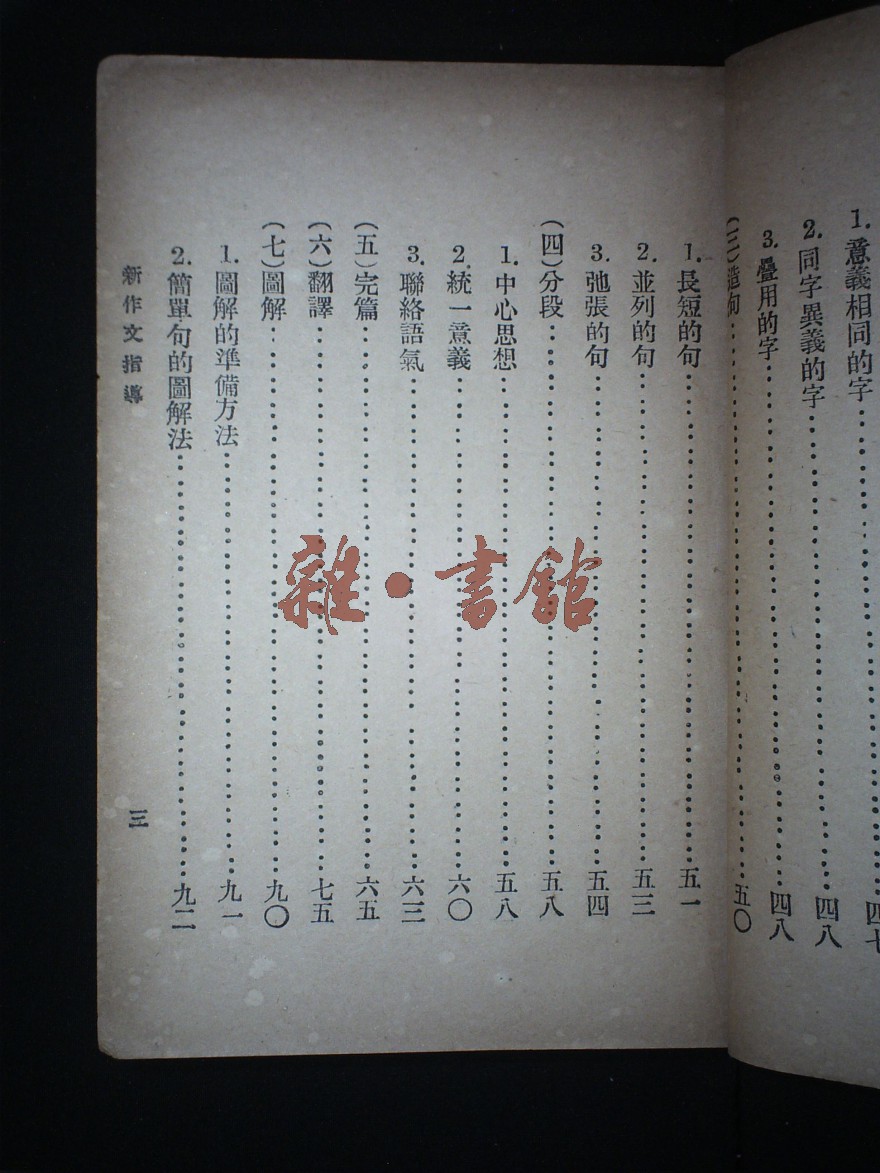 1.意義相同的字……………………四七
2.同字異義的字……………………四八
3.疊用的字……………………四八
(三)造句……………………五〇
1.長短的句……………………五一
2.並列的句……………………五三
3.弛張的句……………………五四
(四)分段……………………五八
1.中心思想……………………五八
2.統一意義……………………六〇
3.聯絡語氣……………………六三
(五)完篇……………………六五
(六)翻譯……………………七五
(七)圖解……………………九〇
1.圖解的準備方法……………………九一
2.簡單句的圖解法……………………九二
新作文指導
三
雜•書館